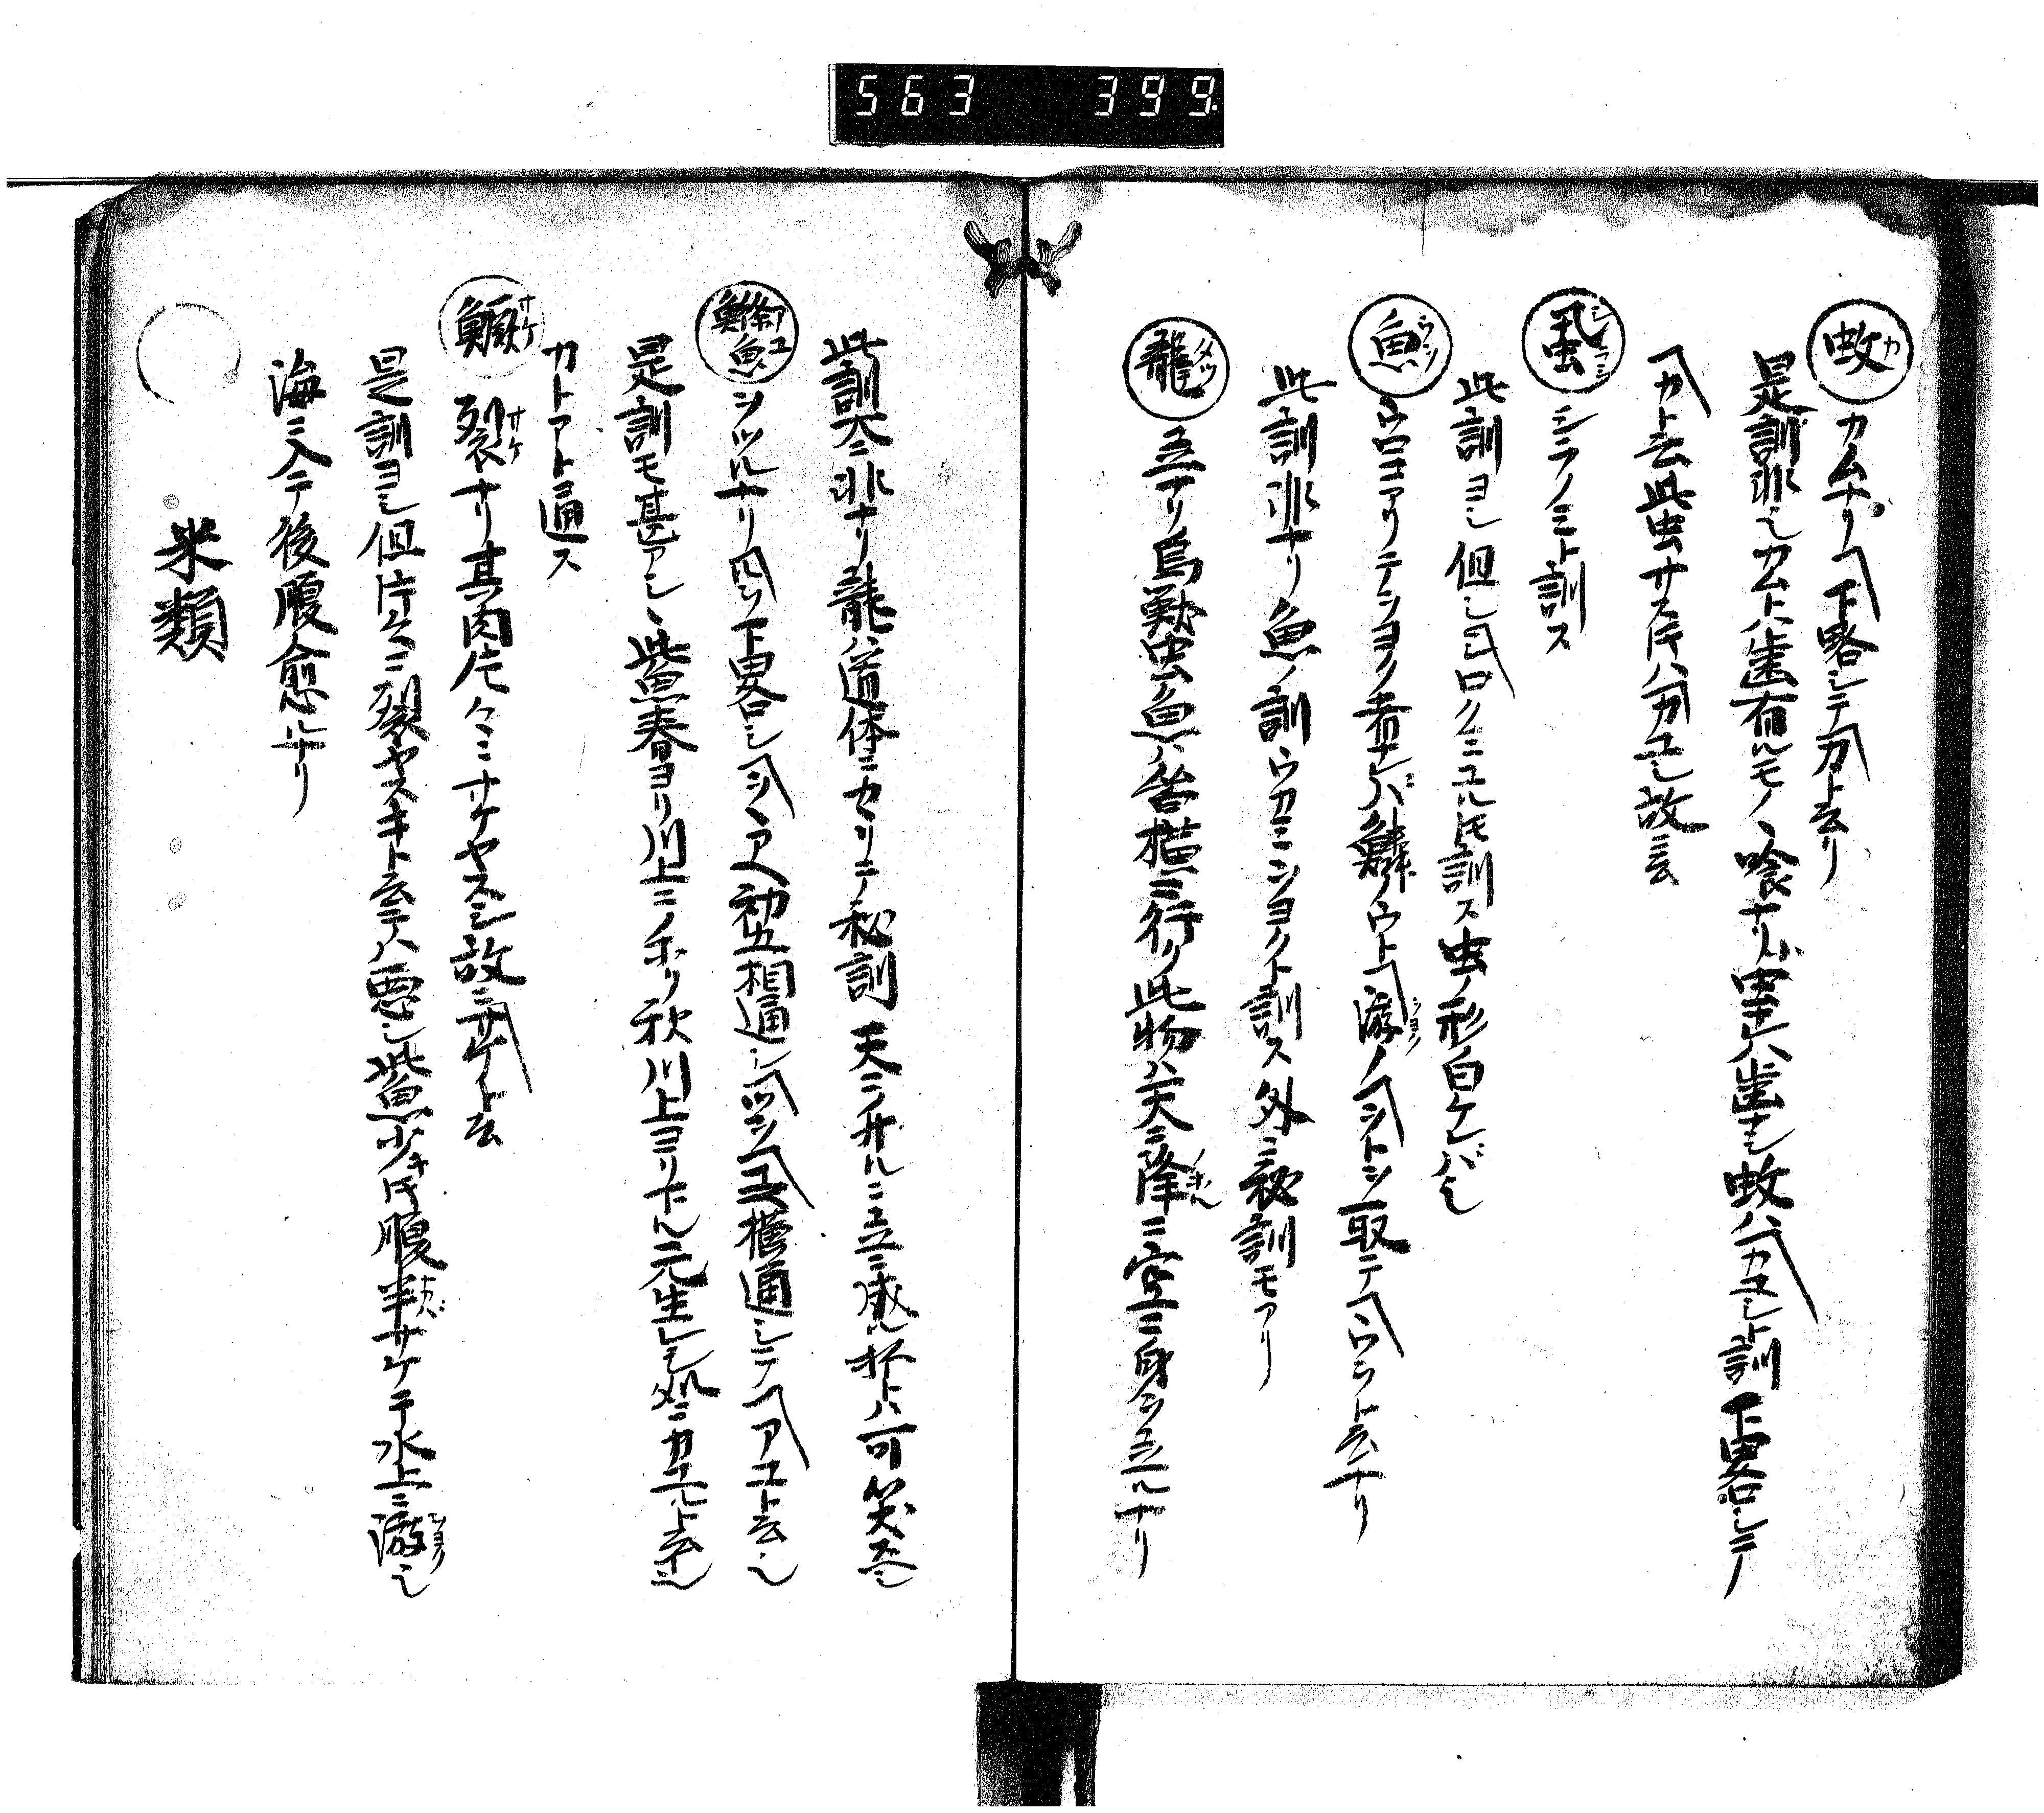 563 399
蚊 カ カムナリ下略シテカト云リ
是訓非也カムトハ歯有ルモノヽ喰ナリ蚊ハカユシト訓下畧シテ
カト云此虫サス所ハカユシ故ニ云
シラノミト訓ス
此訓ヨシ但シシロノミユル訓ス虫ノ形白ケレバ也
魚 ウロコアリテヲヨク者ナレバ鱗ノウト游ノヲトヲ取テウヲト云ナリ
此訓非ナリ魚ノ訓ウカミヲヨクト訓ス外ニ秘訓モアリ
龍 タツ 立ナリ鳥獣虫魚ハ皆横ニ行リ此物ハ天ニ降ニ空ニ身ヲ立ルナリ
此訓大ニ非ナリ龍ハ道体ニカヽリテ秘訓天ニノボルニ立ニ成ル杯トハ可笑也
アユ ヲツルナリ下畧シヲヽア初五相通シツヲユ横通シテアユト云也
是訓モ甚アシヽ此魚春ヨリ川上ニノボリ秋川上ヨリ下ル元生レシ処ニカユルト云
カトアト通ス
鱖 サケ 裂ナリ其肉片々ニサケヤスシ故ニサケト云
是訓ヨシ但片々ニ裂ヤスキト云テハ悪シ此魚少キ腹サケテ水上ニ游也
海ニ入テ後腹愈ルナリ
米類